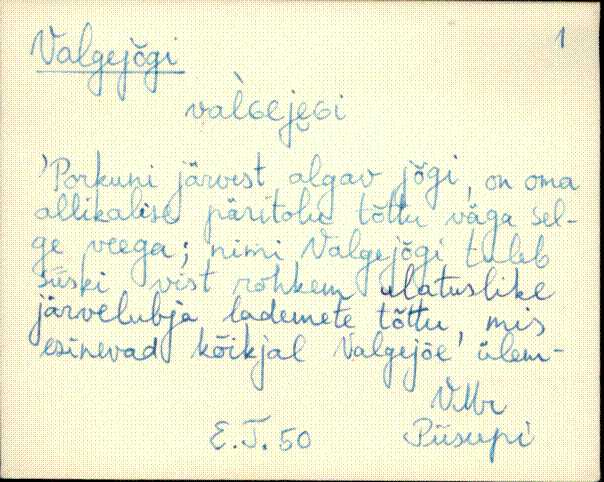 Valgejõgi
1
và̀lɢeje̮ɢi
'Porkuni järvest algav jõgi, on oma
allikalise päritolu tõttu väga sel-
ge veega; nimi Valgejõgi tuleb
siiski vist rohkem ulatuslike
järvelubja lademete tõttu, mis
esinevad kõikjal Valgejõe' ülem-
VMr
E.T. 50 Piisupi